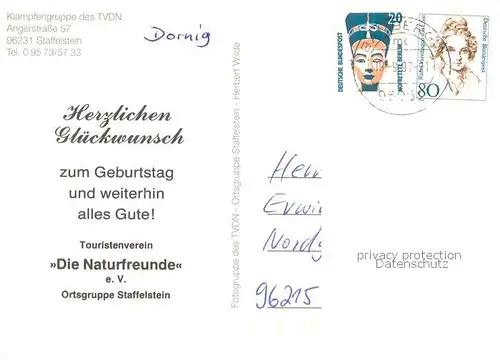 Klampfengruppe des TVDN
Angerstraße 57
96231 Staffelstein
Tel. 0 95 73/57 33
Dornig
Herzlichen
Glückwunsch
zum Geburtstag
und weiterhin
alles Gute!
Touristenverein
»Die Naturfreunde«
e. V.
Ortsgruppe Staffelstein
Fotogruppe des TVDN - Ortsgruppe Staffelstein - Herbert Wilde
DEUTSCHE BUNDESPOST
20
NOFRETETE BERLIN
Deutsche Bundespost
80
Herr
Erwin
Nordg
96215
privacy protection
Datenschutz